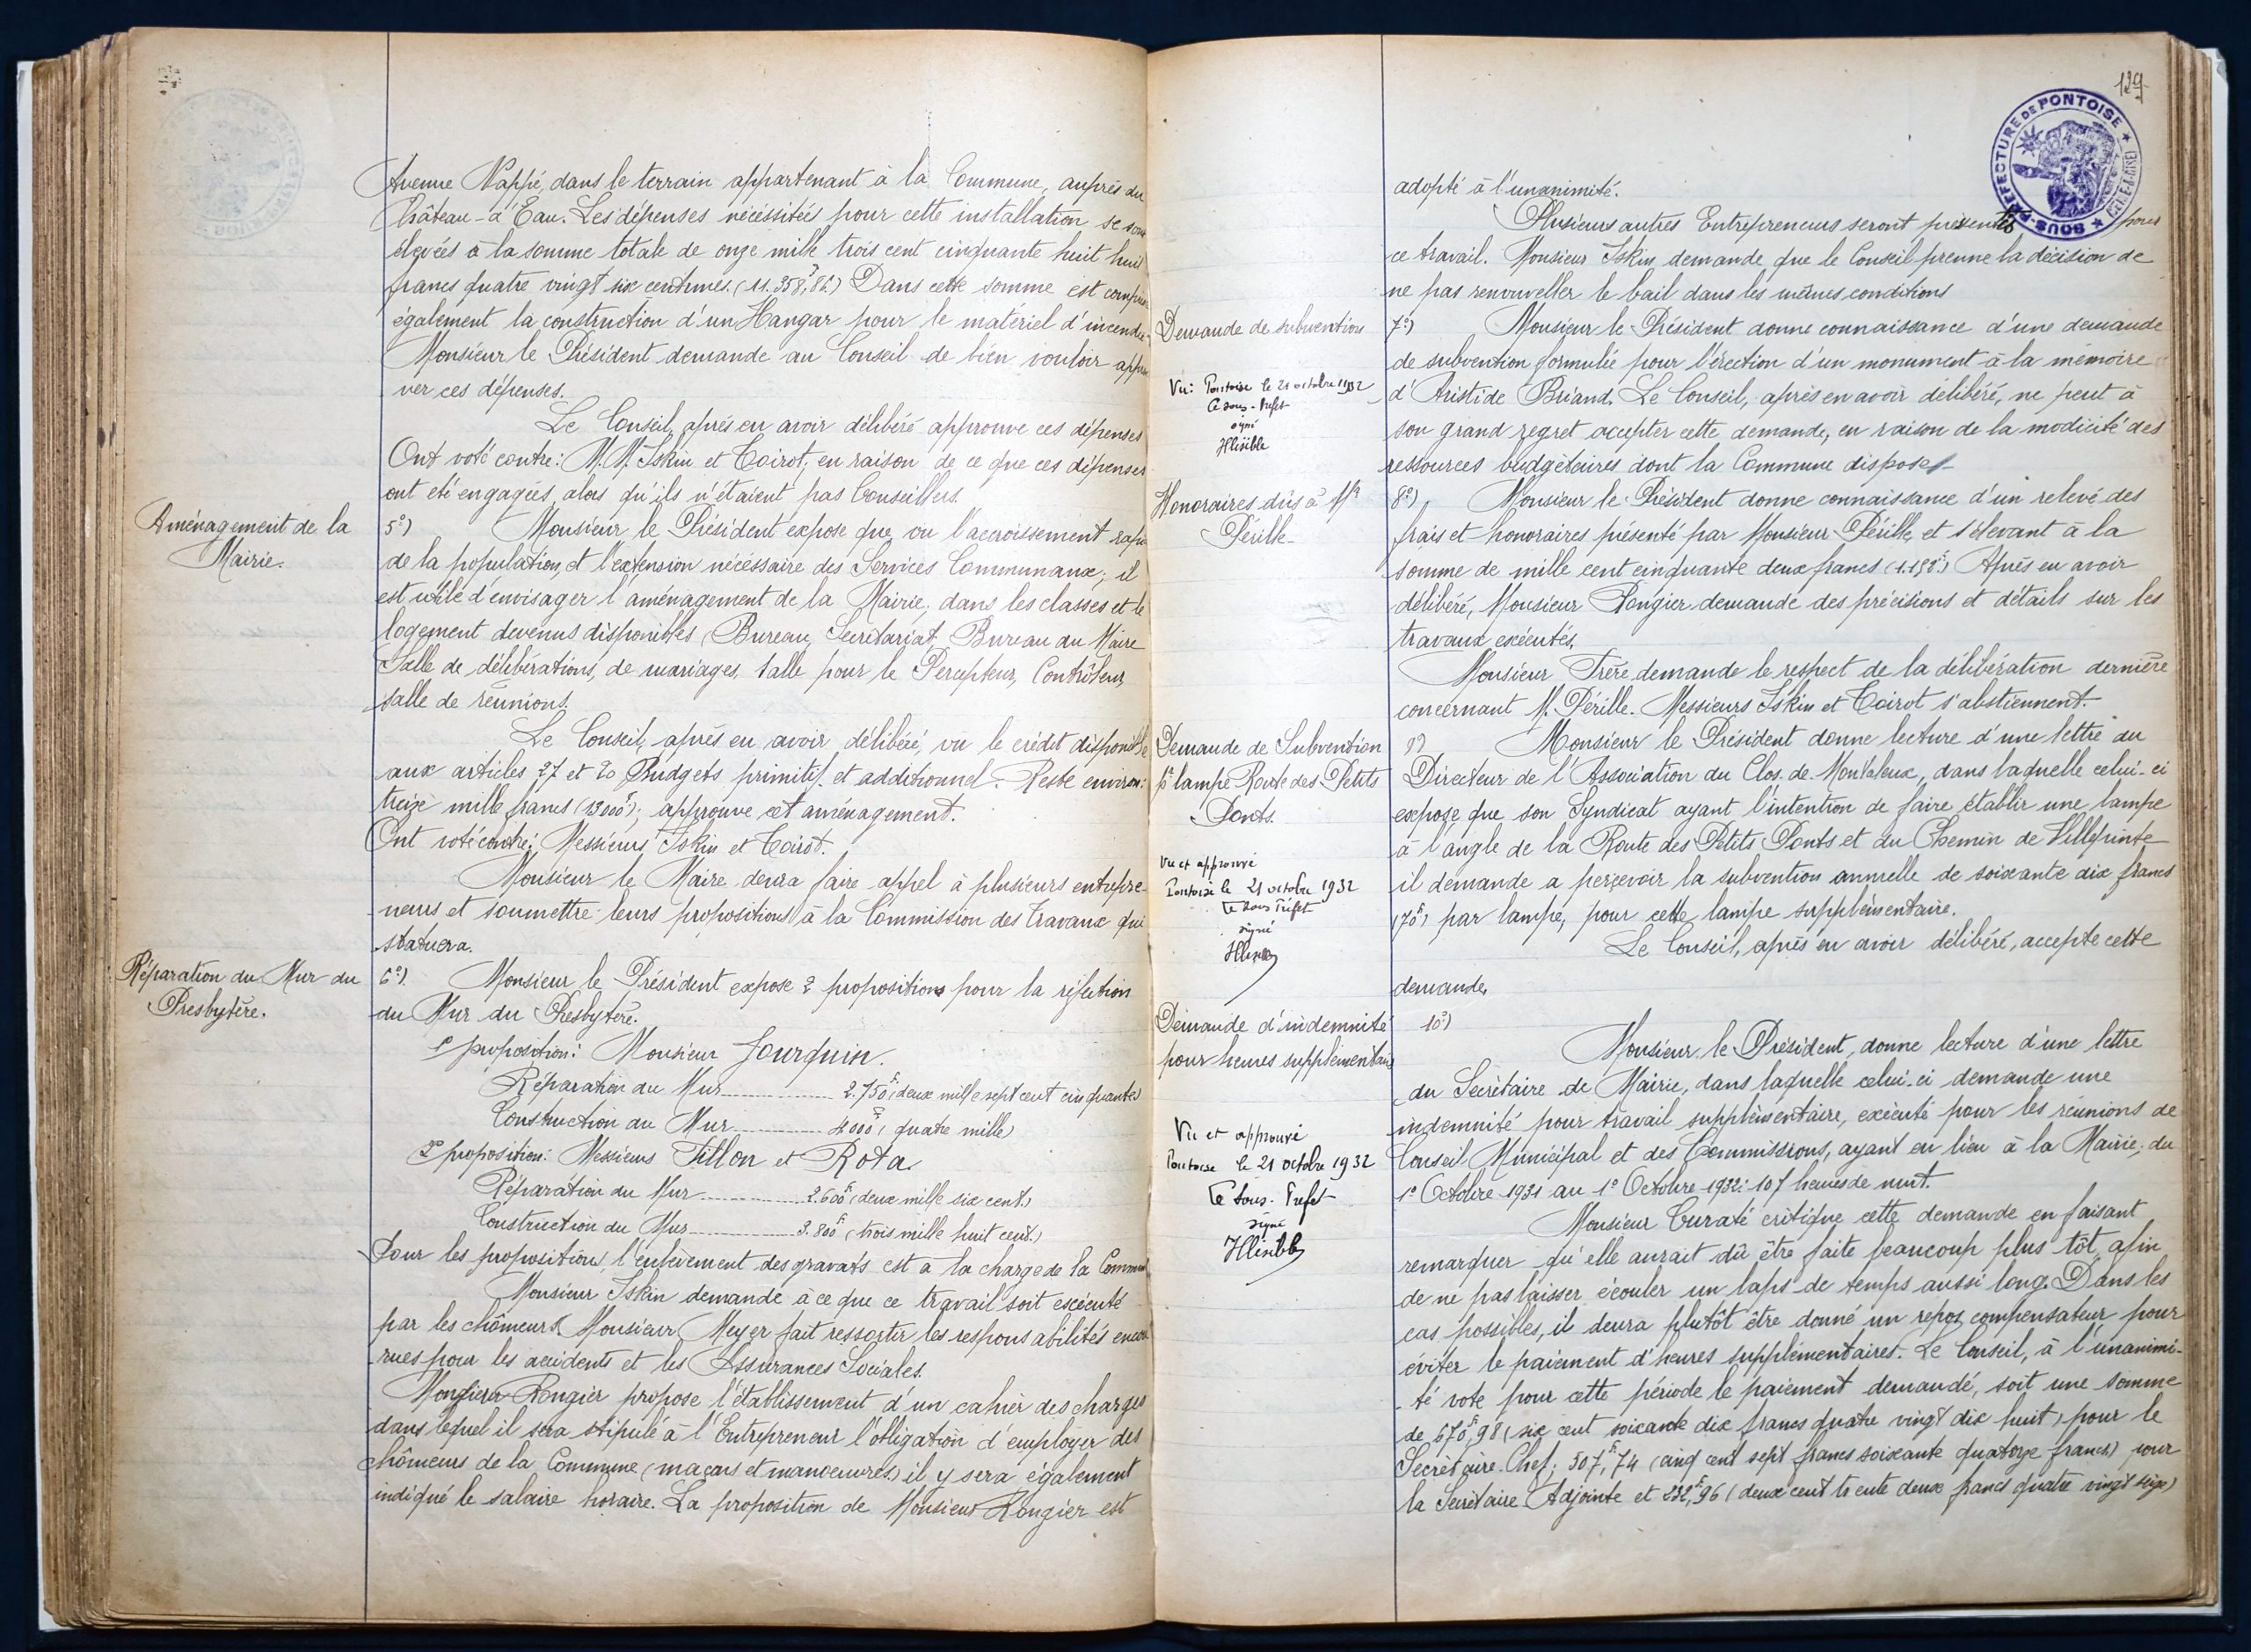 Avenue Nappé, dans le terrain appartenant à la Commune, auprès du
Château-d'Eau. Les dépenses nécéssitées pour cette installation se sont
élevées à la somme totale de onze mille trois cent cinquante huit huit
francs quatre vingt six centimes. (11.358,86) Dans cette somme est comprise
également la construction d'un Hangar pour le matériel d'incendie.
Monsieur le Président demande au Conseil de bien vouloir approu
ver ces dépenses.
Le Conseil, après en avoir délibéré approuve ces dépenses
Ont voté contre: M.M. Iskin et Coirot, en raison de ce que ces dépenses
ont été engagées, alors qu'ils n'étaient pas Conseillers.
Aménagement de la
Mairie.
5º) Monsieur le Président expose que, vu l'accroissement rapi
de la population, et l'extension nécéssaire des Services Communaux, il
est utile d'envisager l'aménagement de la Mairie, dans les classes et le
logement devenus disponibles (Bureau, Secrétariat, Bureau du Maire
Salle de délibérations, de mariages, Salle pour le Percepteur, Contrôleur,
salle de réunions.
Le Conseil, après en avoir délibéré, vu le crédit disponible
aux articles 27 et 20 Budgets primitif et additionnel. Reste environ:
treize mille francs (13000f); approuve cet aménagement.
Ont voté contre: Messieurs Iskin et Coirot.
Monsieur le Maire devra faire appel à plusieurs entrepre-
neurs et soumettre leurs propositions à la Commission des Travaux qui
statuera.
Réparation du Mur du
Presbytère.
6º). Monsieur le Président expose 2 propositions pour la réfection
du Mur du Presbytère.
1º proposition: Monsieur Jourquin.
Réparation du Mur 2.750f (deux mille sept cent cinquante)
Construction du Mur 4000f (quatre mille)
2º proposition: Messieurs Tillon et Rota.
Réparation du Mur 2.600f (deux mille six cent.)
Construction du Mur 3.800f (trois mille huit cent.)
Pour les propositions, l'enlèvement des gravats est à la charge de la Commune
Monsieur Iskin demande à ce que ce travail soit exécuté
par les chômeurs. Monsieur Meyer fait ressortir les responsabilités encou
rues pour les accidents et les Assurances Sociales.
Monsieur Rongier propose l'établissement d'un cahier des charges
dans lequel il sera stipulé à l'Entrepreneur l'obligation d'employer des
chômeurs de la Commune (maçons et manoeuvres) il y sera également
indiqué le salaire horaire. La proposition de Monsieur Rongier est
129
SOUS-PRÉFECTURE DE PONTOISE
adopté à l'unanimité.
Plusieurs autres Entrepreneurs seront présentés pour
ce travail. Monsieur Iskin demande que le Conseil prenne la décision de
ne pas renouveller le bail dans les mêmes conditions
Demande de subvention
7º) Monsieur le Président donne connaissance d'une demande
de subvention formulée pour l'érection d'un monument à la mémoire
d'Aristide Briand. Le Conseil, après en avoir délibéré, ne peut à
son grand regret accepter cette demande, en raison de la modicité des
ressources budgétaires dont la Commune dispose.
Vu: Pontoise le 21 octobre 1932
Le sous-Préfet
signé
Illisible
Honoraires dûs à Mr
Pérille
8º) Monsieur le Président donne connaissance d'un relevé des
frais et honoraires présenté par Monsieur Pérille, et s'élevant à la
somme de mille cent cinquante deux francs (1.152f) Après en avoir
délibéré, Monsieur Rongier demande des précisions et détails sur les
travaux exécutés.
Monsieur Frère demande le respect de la délibération dernière
concernant M. Pérille. Messieurs Iskin et Coirot s'abstiennent.
Demande de Subvention
pr lampe Route des Petits
Ponts.
9º) Monsieur le Président donne lecture d'une lettre du
Directeur de l'Association du Clos de Montaleux, dans laquelle celui-ci
expose que son Syndicat ayant l'intention de faire établir une lampe
à l'angle de la Route des Petits Ponts et du Chemin de Villepinte
il demande a perçevoir la subvention annuelle de soixante dix francs
(70f) par lampe, pour cette lampe supplémentaire.
Le Conseil, après en avoir délibéré, accepte cette
demande,
Vu et approuvé
Pontoise le 21 octobre 1932
Le Sous Préfet
signé
Demande d'indemnité
pour heures supplémentaires
10º)
Monsieur le Président, donne lecture d'une lettre
du Secrétaire de Mairie, dans laquelle celui-ci demande une
indemnité pour travail supplémentaire, exécuté pour les réunions de
Conseil Municipal et des Commissions, ayant eu lieu à la Mairie, du
1º Octobre 1931 au 1º Octobre 1932: 107 heures de nuit.
Monsieur Curaté critique cette demande en faisant
remarquer qu'elle aurait dû être faite beaucoup plus tôt, afin
de ne pas laisser écouler un laps de temps aussi long. Dans les
cas possibles, il devra plutôt être donné un repos compensateur pour
éviter le paiement d'heures supplémentaires. Le Conseil, à l'unanimi-
-té vote pour cette période le paiement demandé, soit une somme
de 670f,98 (six cent soixante dix francs quatre vingt dix huit) pour le
Secrétaire-Chef; 507f,74 (cinq cent sept francs soixante quatorze francs) pour
la Secrétaire Adjointe et 232f,96 (deux cent trente deux francs quatre vingt seize)
Vu et approuvé
Pontoise le 21 octobre 1932
Le Sous-Préfet
signé
Illisible